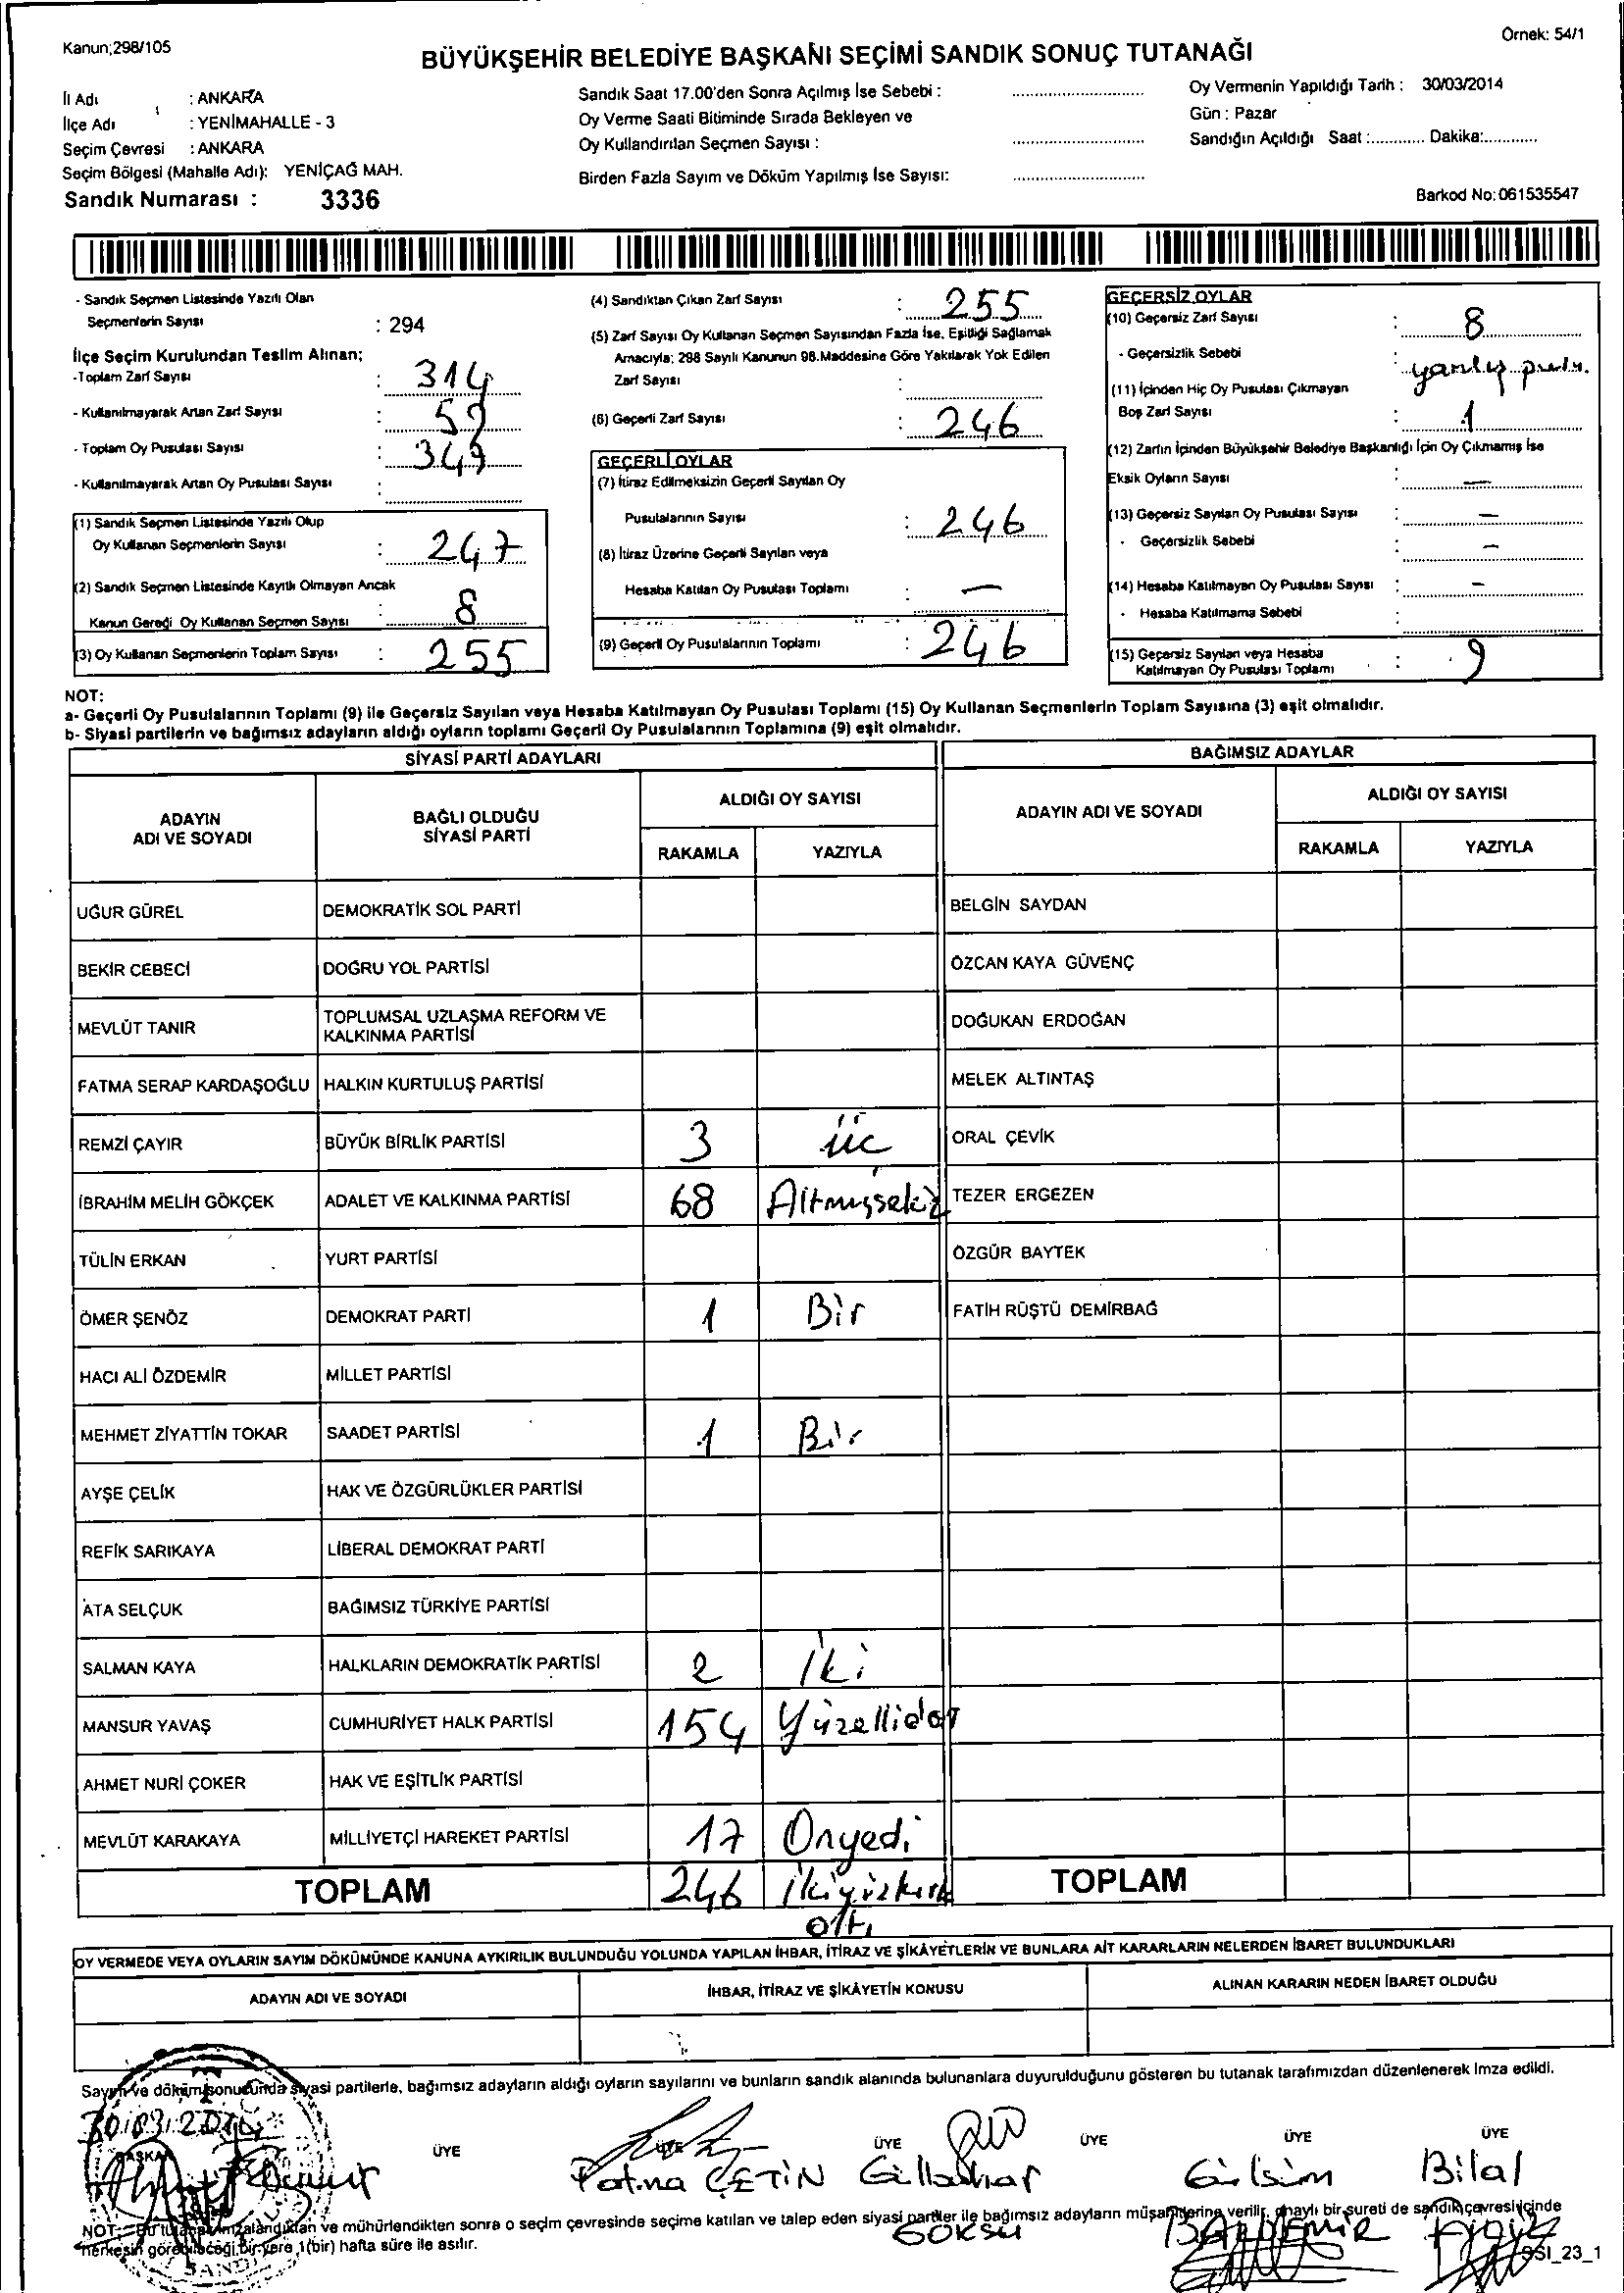 Kanun;298/105
Örnek: 54/1
BÜYÜKŞEHİR BELEDİYE BAŞKANI SEÇİMİ SANDIK SONUÇ TUTANAĞI
İl Adı : ANKARA
İlçe Adı : YENİMAHALLE - 3
Seçim Çevresi : ANKARA
Seçim Bölgesi (Mahalle Adı): YENİÇAĞ MAH.
Sandık Numarası : 3336
Sandık Saat 17.00'den Sonra Açılmış İse Sebebi :
Oy Verme Saati Bitiminde Sırada Bekleyen ve
Oy Kullandırılan Seçmen Sayısı :
Birden Fazla Sayım ve Döküm Yapılmış İse Sayısı:
Oy Vermenin Yapıldığı Tarih : 30/03/2014
Gün : Pazar
Sandığın Açıldığı Saat :............ Dakika:............
Barkod No:061535547
- Sandık Seçmen Listesinde Yazılı Olan
Seçmenlerin Sayısı : 294
İlçe Seçim Kurulundan Teslim Alınan;
-Toplam Zarf Sayısı : 314
- Kullanılmayarak Artan Zarf Sayısı : 59
- Toplam Oy Pusulası Sayısı : 349
- Kullanılmayarak Artan Oy Pusulası Sayısı :
(1) Sandık Seçmen Listesinde Yazılı Olup
Oy Kullanan Seçmenlerin Sayısı : 247
(2) Sandık Seçmen Listesinde Kayıtlı Olmayan Ancak
Kanun Gereği Oy Kullanan Seçmen Sayısı : 8
(3) Oy Kullanan Seçmenlerin Toplam Sayısı : 255
(4) Sandıktan Çıkan Zarf Sayısı : 255
(5) Zarf Sayısı Oy Kullanan Seçmen Sayısından Fazla İse, Eşitliği Sağlamak
Amacıyla; 298 Sayılı Kanunun 98.Maddesine Göre Yakılarak Yok Edilen
Zarf Sayısı :
(6) Geçerli Zarf Sayısı : 246
GEÇERLİ OYLAR
(7) İtiraz Edilmeksizin Geçerli Sayılan Oy
Pusulalarının Sayısı : 246
(8) İtiraz Üzerine Geçerli Sayılan veya
Hesaba Katılan Oy Pusulası Toplamı : —
(9) Geçerli Oy Pusulalarının Toplamı : 246
GEÇERSİZ OYLAR
(10) Geçersiz Zarf Sayısı : 8
- Geçersizlik Sebebi : yanlış
(11) İçinden Hiç Oy Pusulası Çıkmayan
Boş Zarf Sayısı : 1
(12) Zarfın İçinden Büyükşehir Belediye Başkanlığı İçin Oy Çıkmamış İse
Eksik Oyların Sayısı : —
(13) Geçersiz Sayılan Oy Pusulası Sayısı : —
- Geçersizlik Sebebi : —
(14) Hesaba Katılmayan Oy Pusulası Sayısı : —
- Hesaba Katılmama Sebebi :
(15) Geçersiz Sayılan veya Hesaba
Katılmayan Oy Pusulası Toplamı : 9
NOT:
a- Geçerli Oy Pusulalarının Toplamı (9) ile Geçersiz Sayılan veya Hesaba Katılmayan Oy Pusulası Toplamı (15) Oy Kullanan Seçmenlerin Toplam Sayısına (3) eşit olmalıdır.
b- Siyasi partilerin ve bağımsız adayların aldığı oyların toplamı Geçerli Oy Pusulalarının Toplamına (9) eşit olmalıdır.
SİYASİ PARTİ ADAYLARI BAĞIMSIZ ADAYLAR
ADAYIN ADI VE SOYADI BAĞLI OLDUĞU SİYASİ PARTİ ALDIĞI OY SAYISI ADAYIN ADI VE SOYADI ALDIĞI OY SAYISI
RAKAMLA YAZIYLA RAKAMLA YAZIYLA
UĞUR GÜREL DEMOKRATİK SOL PARTİ BELGİN SAYDAN
BEKİR CEBECİ DOĞRU YOL PARTİSİ ÖZCAN KAYA GÜVENÇ
MEVLÜT TANIR TOPLUMSAL UZLAŞMA REFORM VE KALKINMA PARTİSİ DOĞUKAN ERDOĞAN
FATMA SERAP KARDAŞOĞLU HALKIN KURTULUŞ PARTİSİ MELEK ALTINTAŞ
REMZİ ÇAYIR BÜYÜK BİRLİK PARTİSİ 3 üc ORAL ÇEVİK
İBRAHİM MELİH GÖKÇEK ADALET VE KALKINMA PARTİSİ 68 Altmışsekiz TEZER ERGEZEN
TÜLİN ERKAN YURT PARTİSİ ÖZGÜR BAYTEK
ÖMER ŞENÖZ DEMOKRAT PARTİ 1 Bir FATİH RÜŞTÜ DEMİRBAĞ
HACI ALİ ÖZDEMİR MİLLET PARTİSİ
MEHMET ZİYATTİN TOKAR SAADET PARTİSİ 1 Bir
AYŞE ÇELİK HAK VE ÖZGÜRLÜKLER PARTİSİ
REFİK SARIKAYA LİBERAL DEMOKRAT PARTİ
ATA SELÇUK BAĞIMSIZ TÜRKİYE PARTİSİ
SALMAN KAYA HALKLARIN DEMOKRATİK PARTİSİ 2 İki
MANSUR YAVAŞ CUMHURİYET HALK PARTİSİ 154 Yüzellidört
AHMET NURİ ÇOKER HAK VE EŞİTLİK PARTİSİ
MEVLÜT KARAKAYA MİLLİYETÇİ HAREKET PARTİSİ 17 Onyedi
TOPLAM 246 İkiyüzkırk TOPLAM
altı
OY VERMEDE VEYA OYLARIN SAYIM DÖKÜMÜNDE KANUNA AYKIRILIK BULUNDUĞU YOLUNDA YAPILAN İHBAR, İTİRAZ VE ŞİKÂYETLERİN VE BUNLARA AİT KARARLARIN NELERDEN İBARET BULUNDUKLARI
ADAYIN ADI VE SOYADI İHBAR, İTİRAZ VE ŞİKÂYETİN KONUSU ALINAN KARARIN NEDEN İBARET OLDUĞU
Sayım ve döküm sonucunda siyasi partilerle, bağımsız adayların aldığı oyların sayılarını ve bunların sandık alanında bulunanlara duyurulduğunu gösteren bu tutanak tarafımızdan düzenlenerek imza edildi.
30.03.2014
BAŞKAN ÜYE ÜYE ÜYE ÜYE ÜYE ÜYE
Fatma ÇETİN Gülbahar Gülsüm Bilal
GÖKSU BALDEMİR
NOT: Bu tutanak imzalandıktan ve mühürlendikten sonra o seçim çevresinde seçime katılan ve talep eden siyasi partiler ile bağımsız adayların müşahitlerine verilir, onaylı bir sureti de sandık çevresi içinde
herkesin görebileceği bir yere 1(bir) hafta süre ile asılır.
SSI_23_1